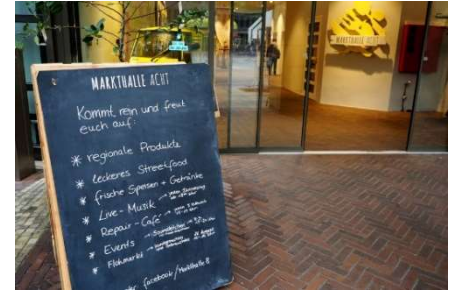 MARKTHALLE ACHT
MARKTHALLE ACHT
Kommt rein und freut
euch auf:
* regionale Produkte
* leckeres Streetfood
* frische Speisen + Getränke
* Live-Musik →
* Repair-Café →
* Events →
* Flohmarkt →
facebook/Markthalle 8